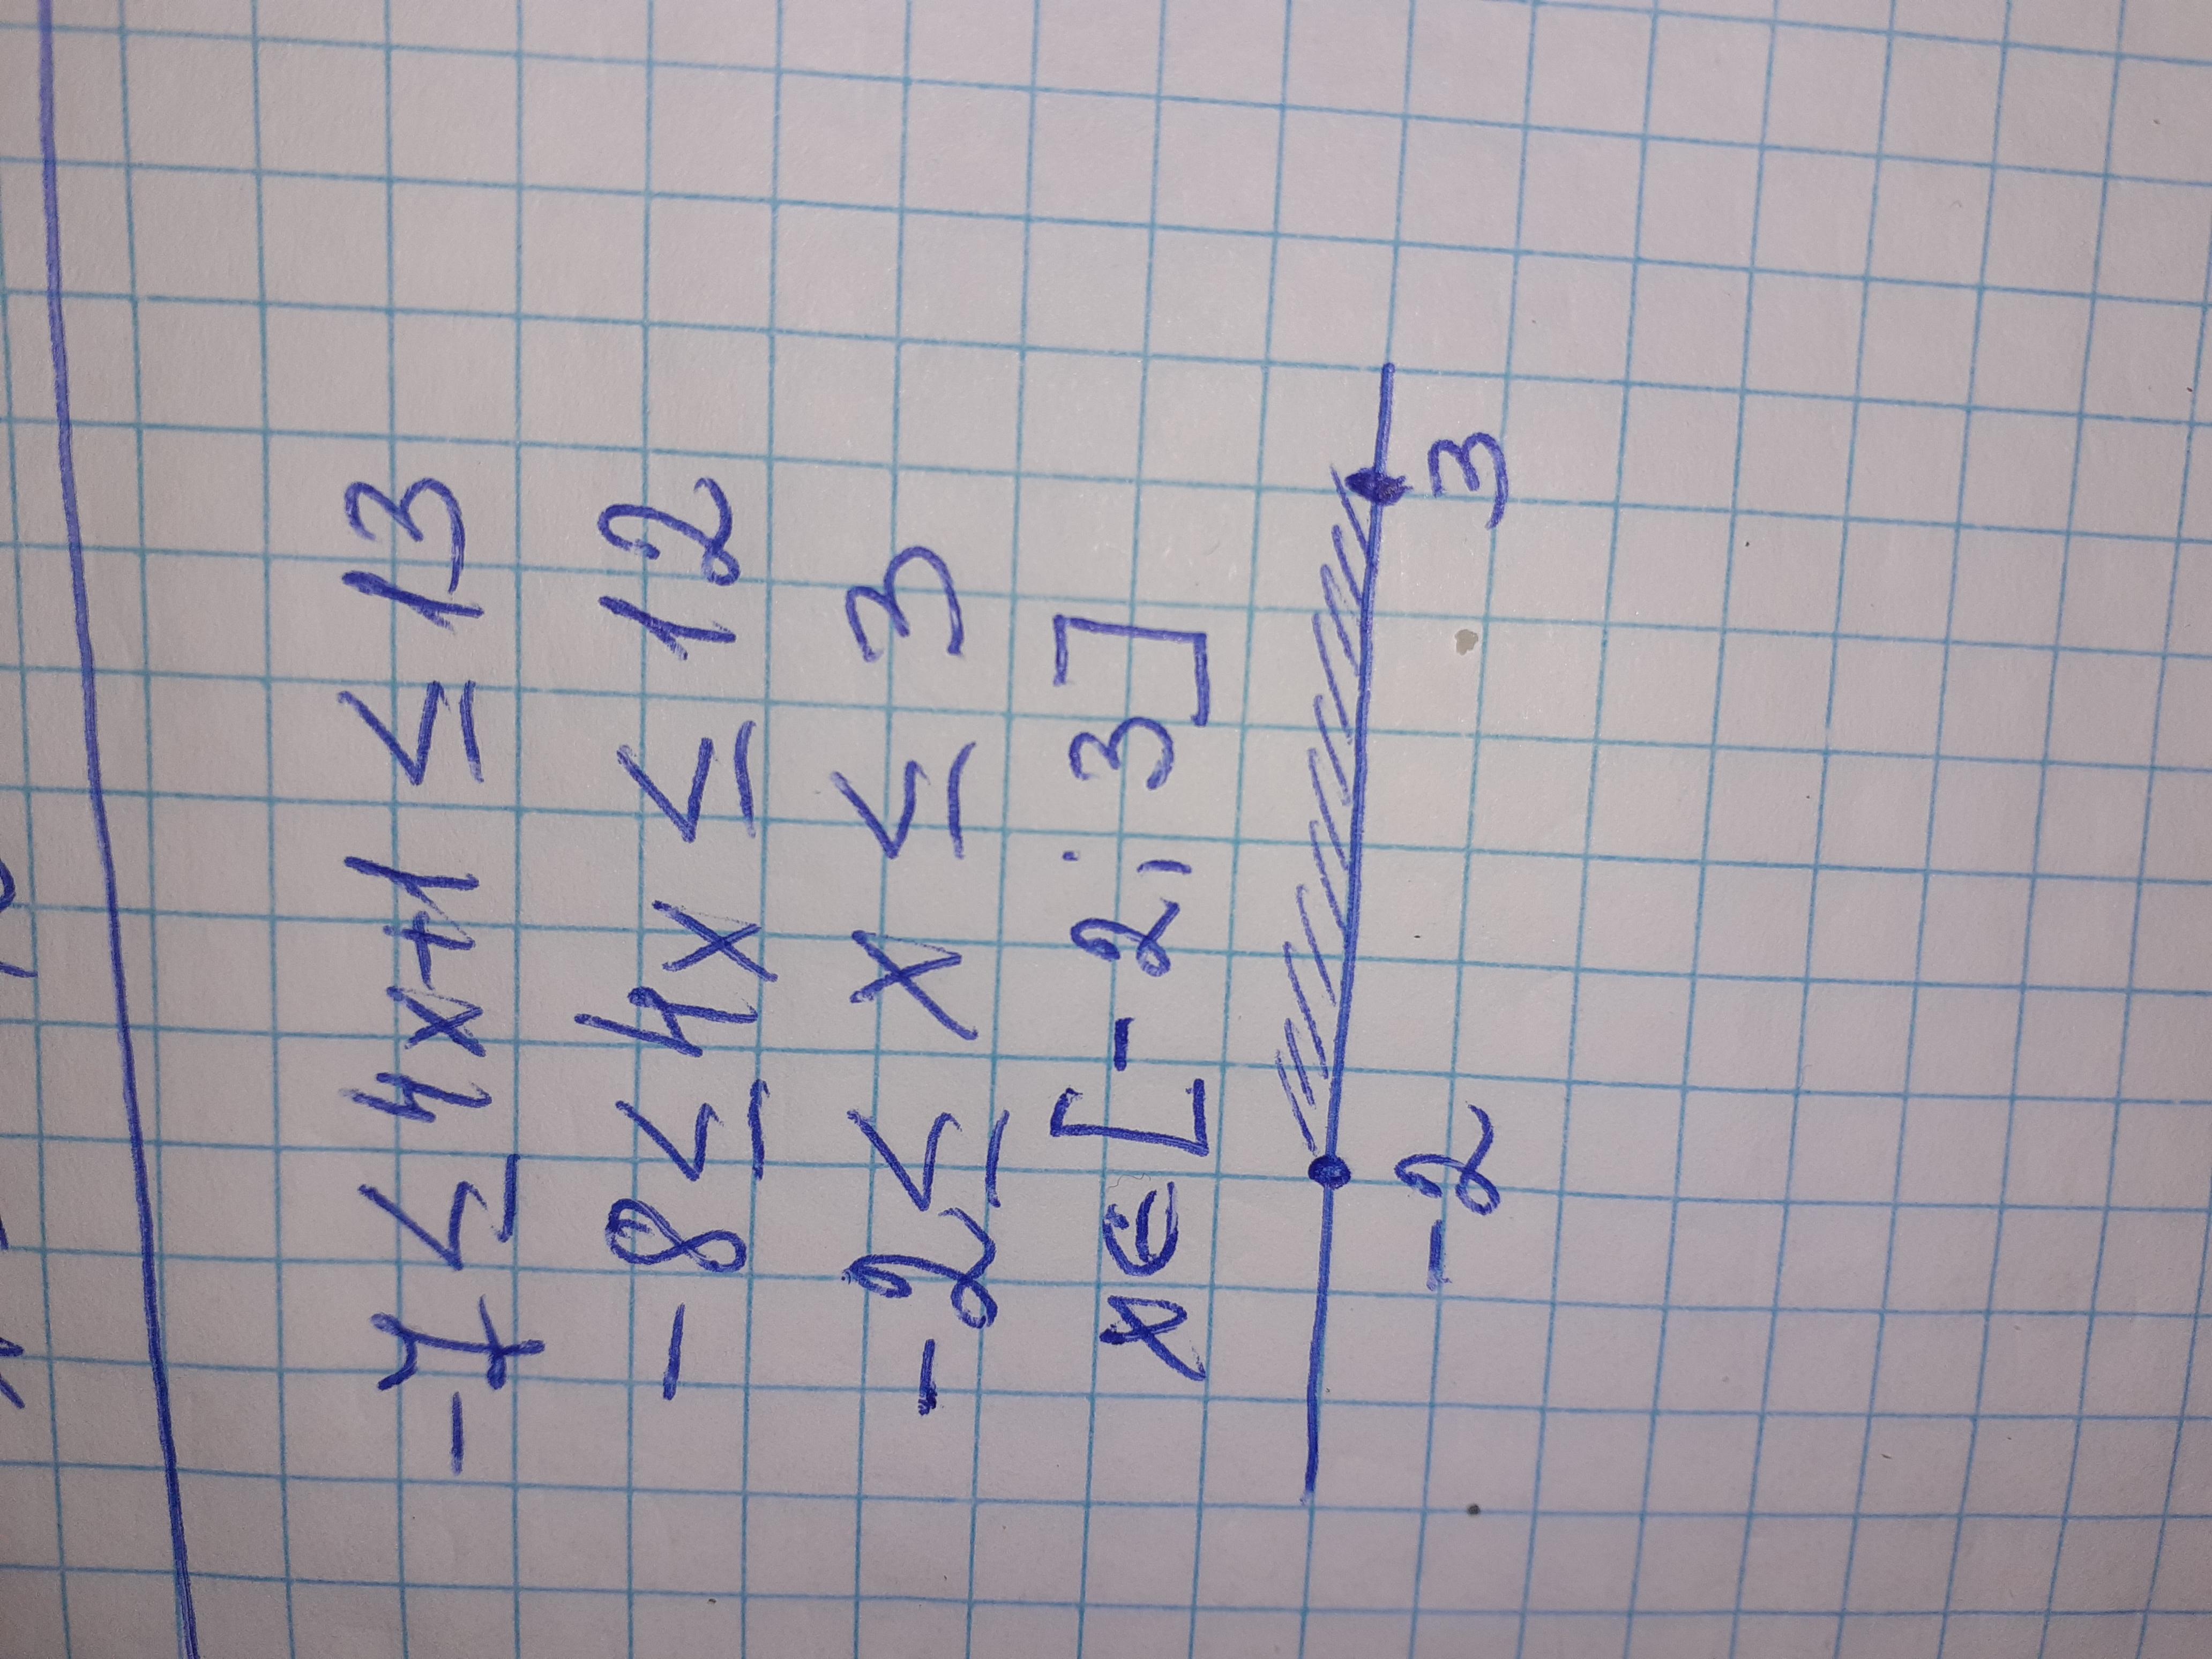 -7 ≤ 4x+1 ≤ 13
-8 ≤ 4x ≤ 12
-2 ≤ x ≤ 3
x∈[-2; 3]
-2 3